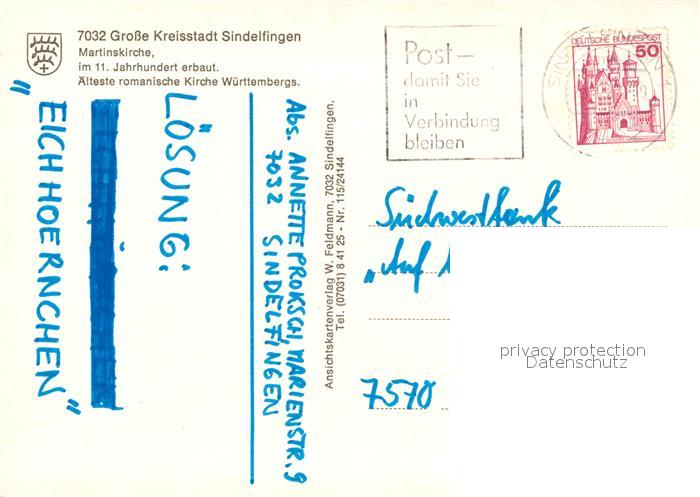 7032 Große Kreisstadt Sindelfingen
Martinskirche,
im 11. Jahrhundert erbaut.
Älteste romanische Kirche Württembergs.
LÖSUNG:
"EICHHOERNCHEN"
Abs. ANNETTE PROKSCH MARIENSTR. 9
7032 SINDELFINGEN
Ansichtskartenverlag W. Feldmann, 7032 Sindelfingen,
Tel. (07031) 8 41 25 - Nr. 115/24144
Post –
damit Sie
in
Verbindung
bleiben
DEUTSCHE BUNDESPOST
50
Südwestbank
„Auf
7570
privacy protection
Datenschutz